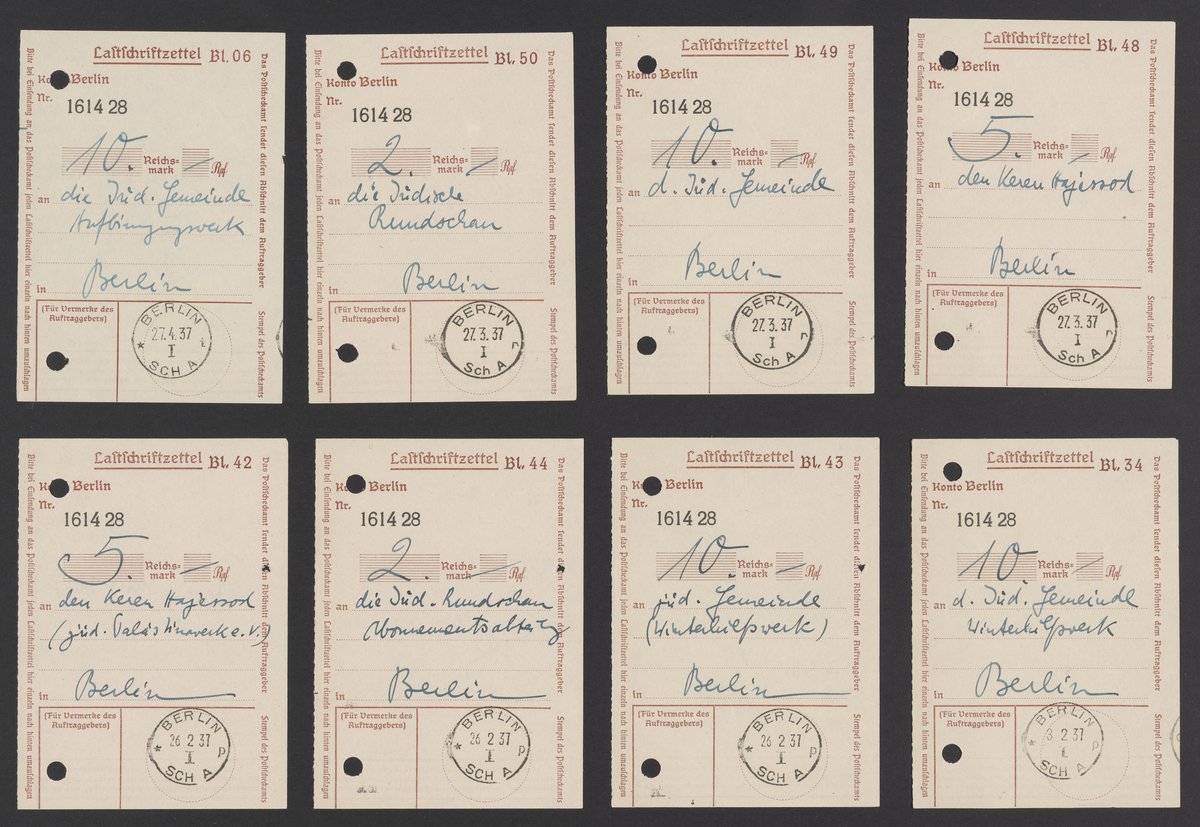 Lastschriftzettel Bl. 06
Konto Berlin
Nr. 1614 28
10. Reichs-
mark — Rpf.
an die Jüd. Gemeinde
Aufbringungswerk
in Berlin
(Für Vermerke des
Auftraggebers)
BERLIN
27.4.37
I
SCH A
Bitte bei Einsendung an das Postscheckamt jeden Lastschriftzettel hier einzeln nach hinten umzuschlagen
Das Postscheckamt sendet diesen Abschnitt dem Auftraggeber
Stempel des Postscheckamts
Lastschriftzettel Bl. 50
Konto Berlin
Nr. 1614 28
2. Reichs-
mark — Rpf.
an die Jüdische
Rundschau
in Berlin
(Für Vermerke des
Auftraggebers)
BERLIN
27.3.37
I c
Sch A
Bitte bei Einsendung an das Postscheckamt jeden Lastschriftzettel hier einzeln nach hinten umzuschlagen
Das Postscheckamt sendet diesen Abschnitt dem Auftraggeber
Stempel des Postscheckamts
Lastschriftzettel Bl. 49
Konto Berlin
Nr. 1614 28
10. Reichs-
mark — Rpf.
an d. Jüd. Gemeinde
in Berlin
(Für Vermerke des
Auftraggebers)
BERLIN
27.3.37
I c
Sch A
Bitte bei Einsendung an das Postscheckamt jeden Lastschriftzettel hier einzeln nach hinten umzuschlagen
Das Postscheckamt sendet diesen Abschnitt dem Auftraggeber
Stempel des Postscheckamts
Lastschriftzettel Bl. 48
Konto Berlin
Nr. 1614 28
5. Reichs-
mark — Rpf.
an den Keren Hajessod
in Berlin
(Für Vermerke des
Auftraggebers)
BERLIN
27.3.37
I c
Sch A
Bitte bei Einsendung an das Postscheckamt jeden Lastschriftzettel hier einzeln nach hinten umzuschlagen
Das Postscheckamt sendet diesen Abschnitt dem Auftraggeber
Stempel des Postscheckamts
Lastschriftzettel Bl. 42
Konto Berlin
Nr. 1614 28
5. Reichs-
mark — Rpf.
an den Keren Hajessod
(jüd. Palästinawerk e.V.)
in Berlin
(Für Vermerke des
Auftraggebers)
BERLIN
26 2 37
I p
SCH A
Bitte bei Einsendung an das Postscheckamt jeden Lastschriftzettel hier einzeln nach hinten umzuschlagen
Das Postscheckamt sendet diesen Abschnitt dem Auftraggeber
Stempel des Postscheckamts
Lastschriftzettel Bl. 44
Konto Berlin
Nr. 1614 28
2. Reichs-
mark — Rpf.
an die Jüd. Rundschau
in Berlin
(Für Vermerke des
Auftraggebers)
BERLIN
26 2 37
I p
SCH A
Bitte bei Einsendung an das Postscheckamt jeden Lastschriftzettel hier einzeln nach hinten umzuschlagen
Das Postscheckamt sendet diesen Abschnitt dem Auftraggeber
Stempel des Postscheckamts
Lastschriftzettel Bl. 43
Konto Berlin
Nr. 1614 28
10. Reichs-
mark — Rpf.
an jüd. Gemeinde
(Winterhilfswerk)
in Berlin
(Für Vermerke des
Auftraggebers)
BERLIN
26 2 37
I p
SCH A
Bitte bei Einsendung an das Postscheckamt jeden Lastschriftzettel hier einzeln nach hinten umzuschlagen
Das Postscheckamt sendet diesen Abschnitt dem Auftraggeber
Stempel des Postscheckamts
Lastschriftzettel Bl. 34
Konto Berlin
Nr. 1614 28
10. Reichs-
mark — Rpf.
an d. Jüd. Gemeinde
Winterhilfswerk
in Berlin
(Für Vermerke des
Auftraggebers)
BERLIN
3 2 37
I p
SCH A
Bitte bei Einsendung an das Postscheckamt jeden Lastschriftzettel hier einzeln nach hinten umzuschlagen
Das Postscheckamt sendet diesen Abschnitt dem Auftraggeber
Stempel des Postscheckamts